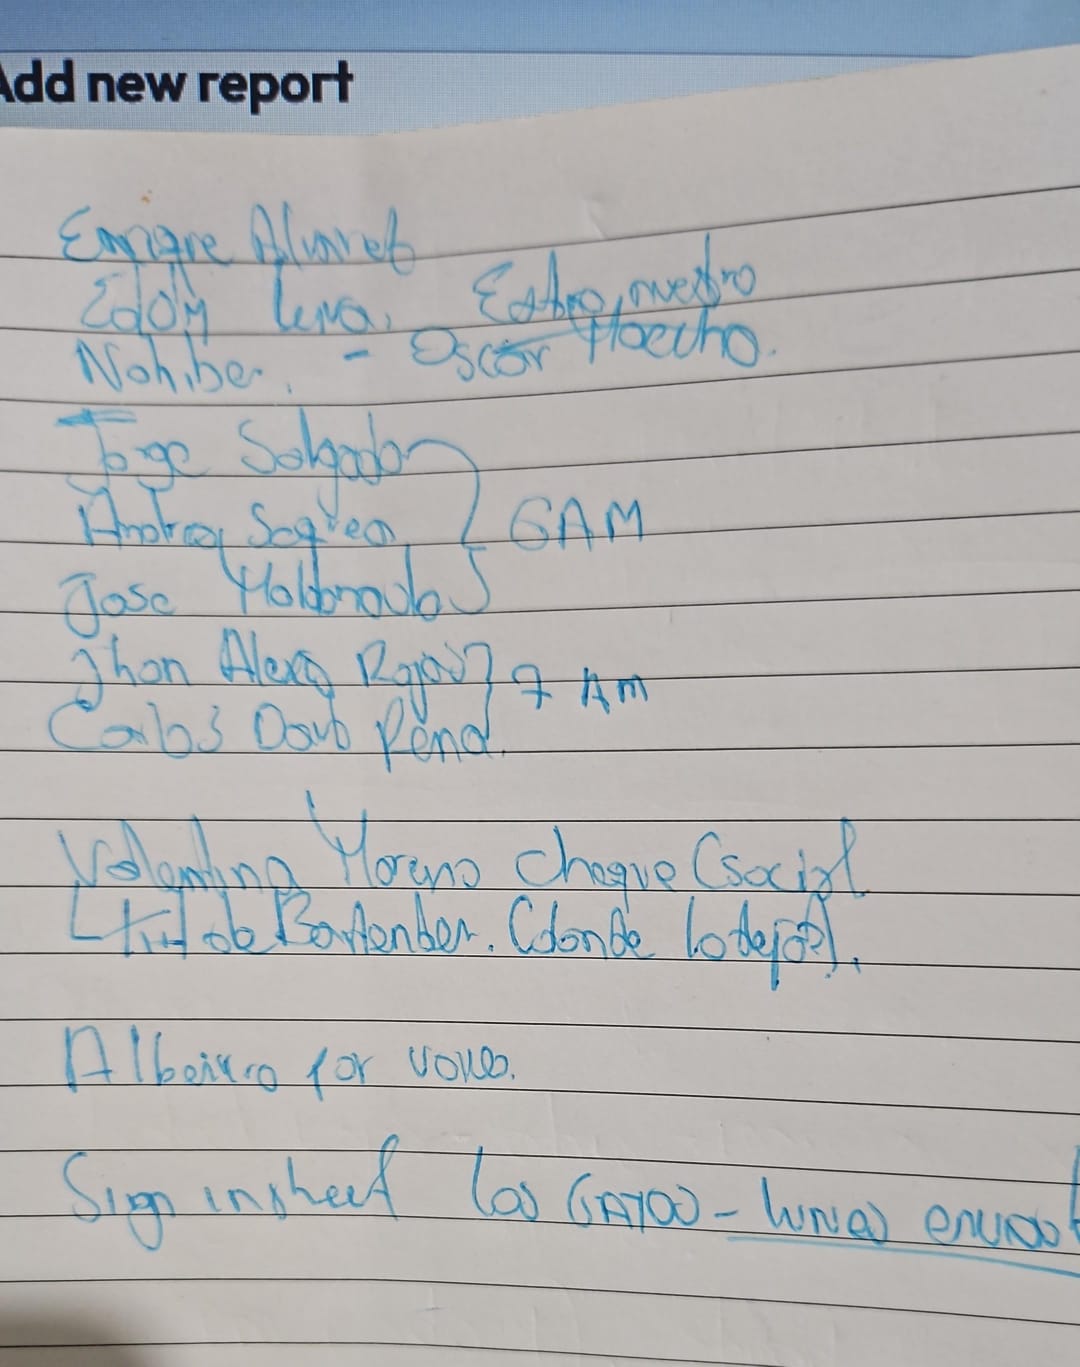 Add new report
Enrique Alvarez
Eddy Leva.
Nohiber. - Oscar Hoecho.
Jorge Salgado
Andrea 6AM
Jose Maldonado
Jhon Alexa 7 AM
Carlos David Pena.
Valentina Moreno cheque (social
de Bartender. (donde lo dejo?).
Albeiro for
Sign in sheet Los GATOS - lunes envio